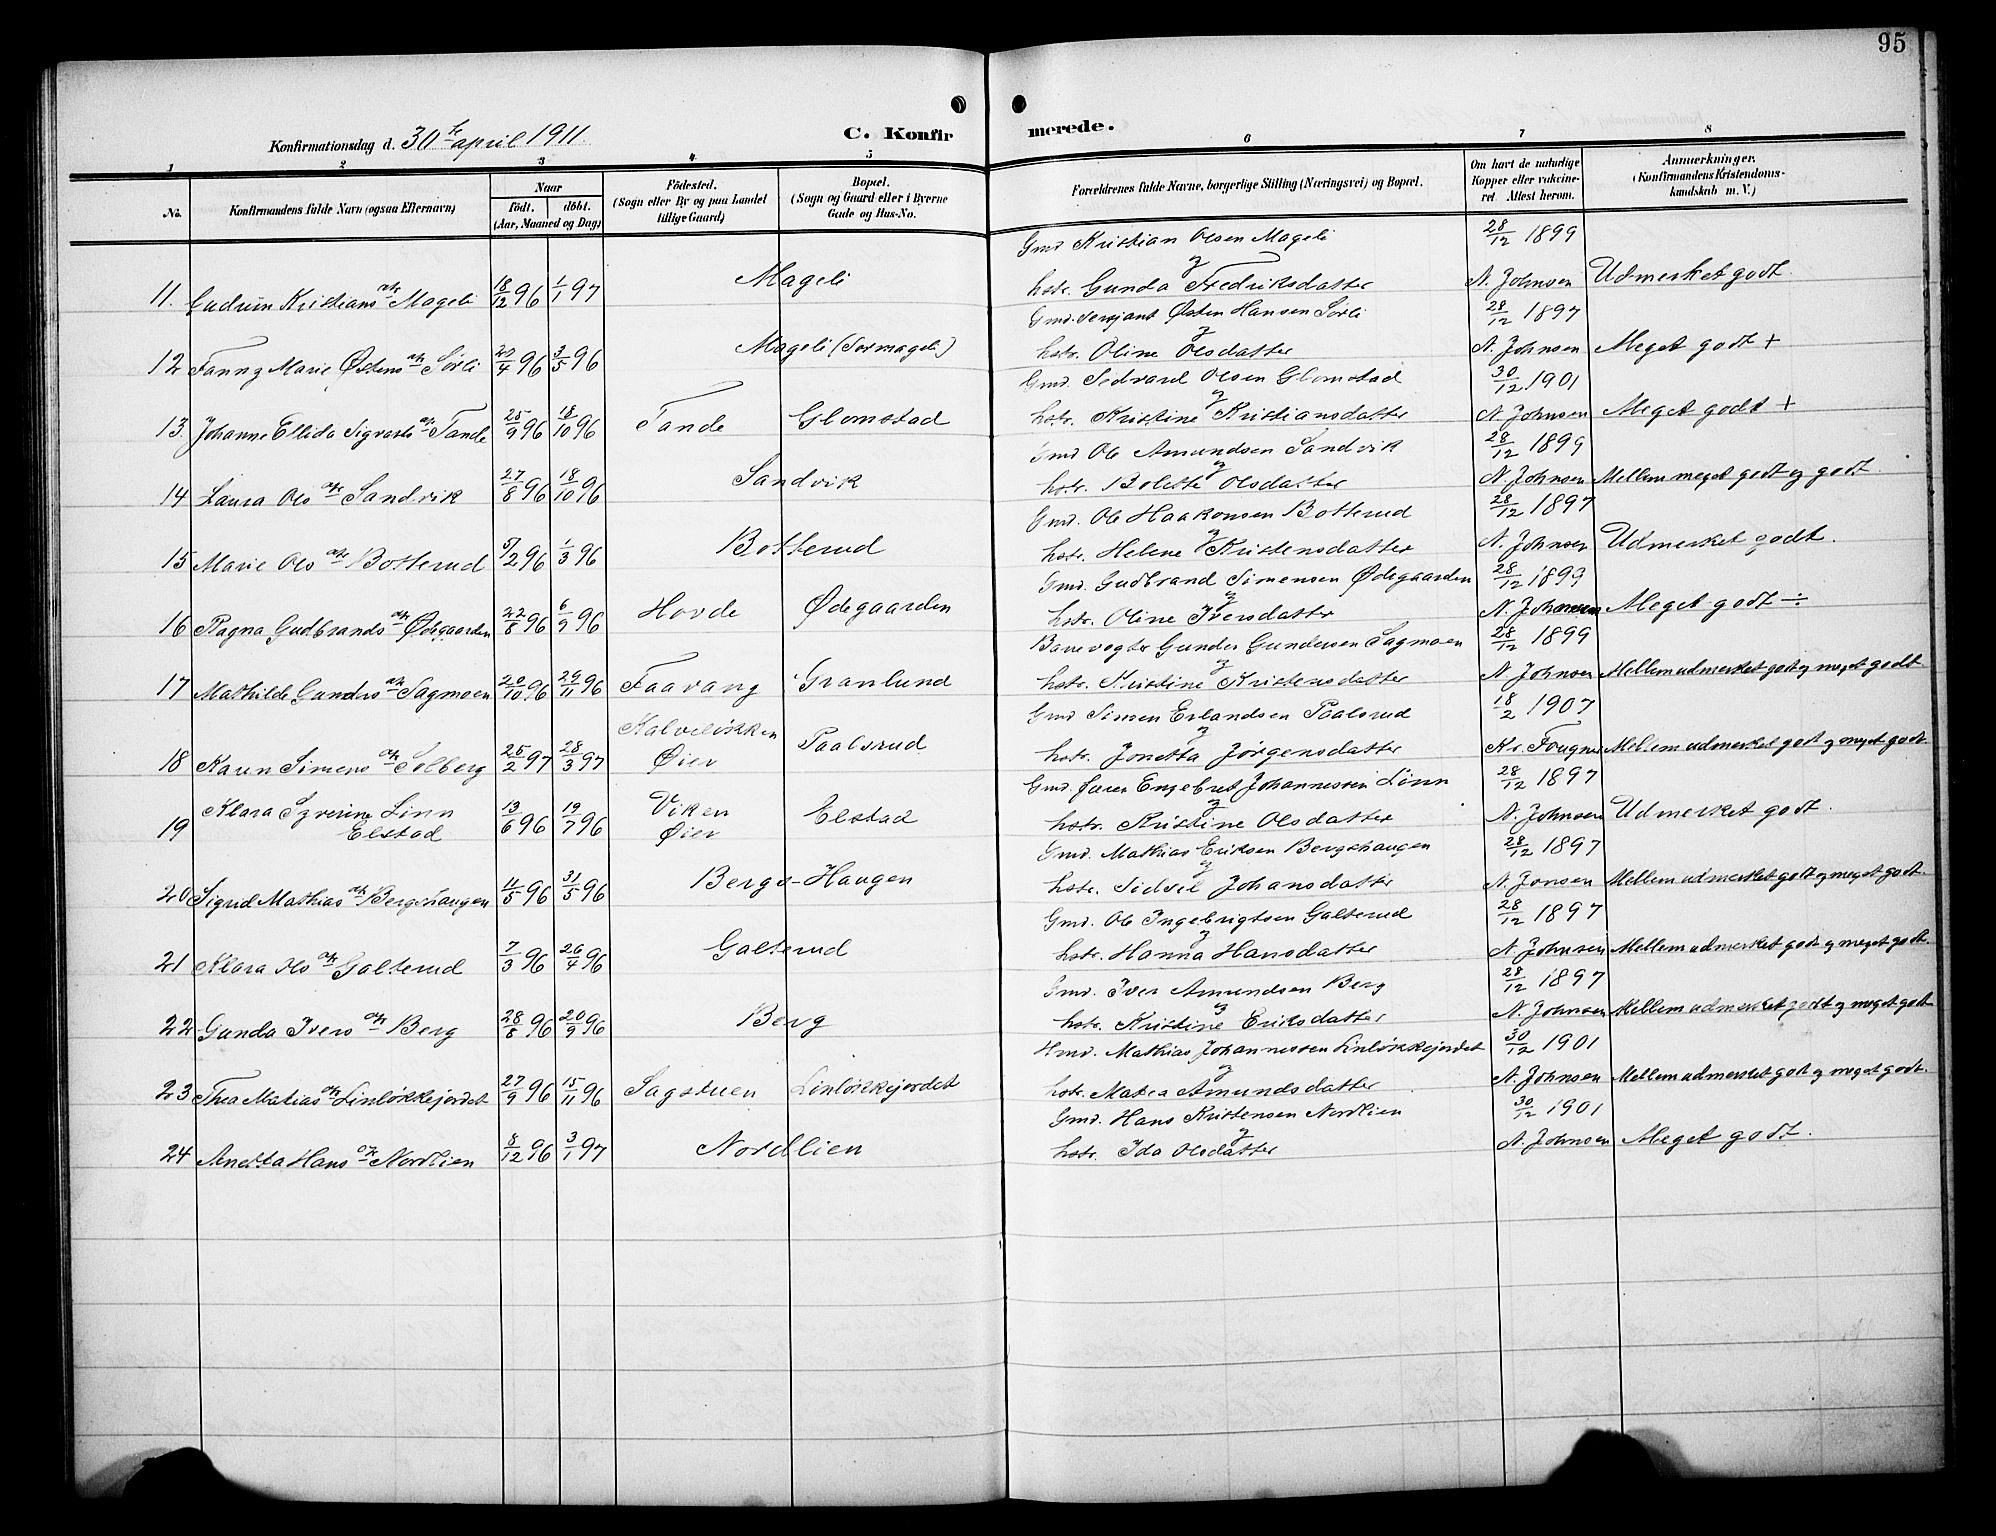 95
Konfirmationsdag d. 30te april 1911.
C. Konfirmerede.
1 2 3 4 5 6 7 8
No.
Konfirmandens fulde Navn (ogsaa Efternavn)
Naar
födt. döbt.
(Aar, Maaned og Dag)
Födested.
(Sogn eller By og paa Landet
tillige Gaard)
Bopæl.
(Sogn og Gaard eller i Byerne
Gade og Hus-No.
Forældrenes fulde Navne, borgerlige Stilling (Næringsvei) og Bopæl.
Om havt de naturlige
Kopper eller vakcine-
ret. Attest herom.
Anmerkninger.
(Konfirmandens Kristendoms-
kundskab m. V.)
Gmd Kristian Olsen Mageli 28/12 1899
11. Gudrun Kristians dtr Mageli 18/12 96 1/1 97 Mageli og hstr. Gunda Fredriksdatter N. Johnsen Udmerket godt.
Gmd. Sersjant Østen Hansen Sörli 28/12 1897
12 Fanny Marie Østens dtr Sörli 29/4 96 3/5 96 Mageli (Sormageli) og hstr. Oline Olsdatter N. Johnsen Meget godt +
Gmd. Sedvard Olsen Glomstad 30/12 1901
13. Johanne Ellida Sigvarts dtr Tande 25/9 96 18/10 96 Tande Glomstad og hstr. Kristine Kristiansdatter N. Johnsen Meget godt +
Gmd Ole Amundsen Sandvik 28/12 1899
14 Laura Ols dtr Sandvik 27/8 96 18/10 96 Sandvik og hstr. Bolette Olsdatter N. Johnsen Mellem meget godt og godt.
Gmd. Ole Haakonsen Botterud 28/12 1897
15 Marie Ols dtr Botterud 5/2 96 1/3 96 Botterud og hstr. Helene Kristensdatter N. Johnsen Udmerket godt.
Gmd. Gudbrand Simensen Ødegaarden 28/12 1899
16 Ragna Gudbrands dtr Ødegaarden 22/8 96 6/9 96 Hovde Ødegaarden og hstr. Oline Iversdatter N. Johnsen Meget godt ÷
Banevogter Gunder Gundersen Sagmoen 28/12 1899
17 Mathilde Gunders dtr Sagmoen 20/10 96 29/11 96 Faavang Granlund og hstr. Kristine Kristensdatter N. Johnsen Mellem udmerket godt og meget godt
Gmd Simen Erlandsen Paalsrud 18/2 1907
Kalveløkken
18 Karen Simens dtr Solberg 25/2 97 28/3 97 Øier Paalsrud og hstr. Jonetta Jørgensdatter Kr. Fougner Mellem udmerket godt og meget godt.
Gmd. faren Engebret Johannessen Linn 28/12 1897
Klara Syverine Linn 13/6 96 19/7 96 Viken Elstad
19 Elstad Øier og hstr. Kristine Olsdatter N. Johnsen Udmerket godt.
Gmd. Mathias Eriksen Bergshaugen 28/12 1897
20 Sigrid Mathias dtr Bergshaugen 4/5 96 31/5 96 Bergs-Haugen og hstr. Sidsel Johansdatter N. Jonsen Mellem udmerket godt og meget godt.
Gmd. Ole Ingebrigtsen Galterud 28/12 1897
21 Klara Ols dtr Galterud 7/3 96 26/4 96 Galterud og hstr. Hanna Hansdatter N. Johnsen Mellem udmerket godt og meget godt.
Gmd. Iver Amundsen Berg 28/12 1897
22 Gunda Ivers dtr Berg 28/8 96 20/9 96 Berg og hstr. Kristine Eriksdatter N. Johnsen Mellem udmerket godt og meget godt
Hmd. Mathias Johannessen Linløkkejordet 30/12 1901
23 Thea Matias dtr Linløkkejordet 27/9 96 15/11 96 Sagstuen Linløkkejordet og hstr. Matea Amundsdatter N. Johnsen Mellem udmerket godt og meget godt.
Gmd. Hans Kristensen Nordlien 30/12 1901
24 Anetta Hans dtr Nordlien 8/12 96 3/1 97 Nordlien og hstr. Ida Olsdatter N. Johnsen Meget godt.